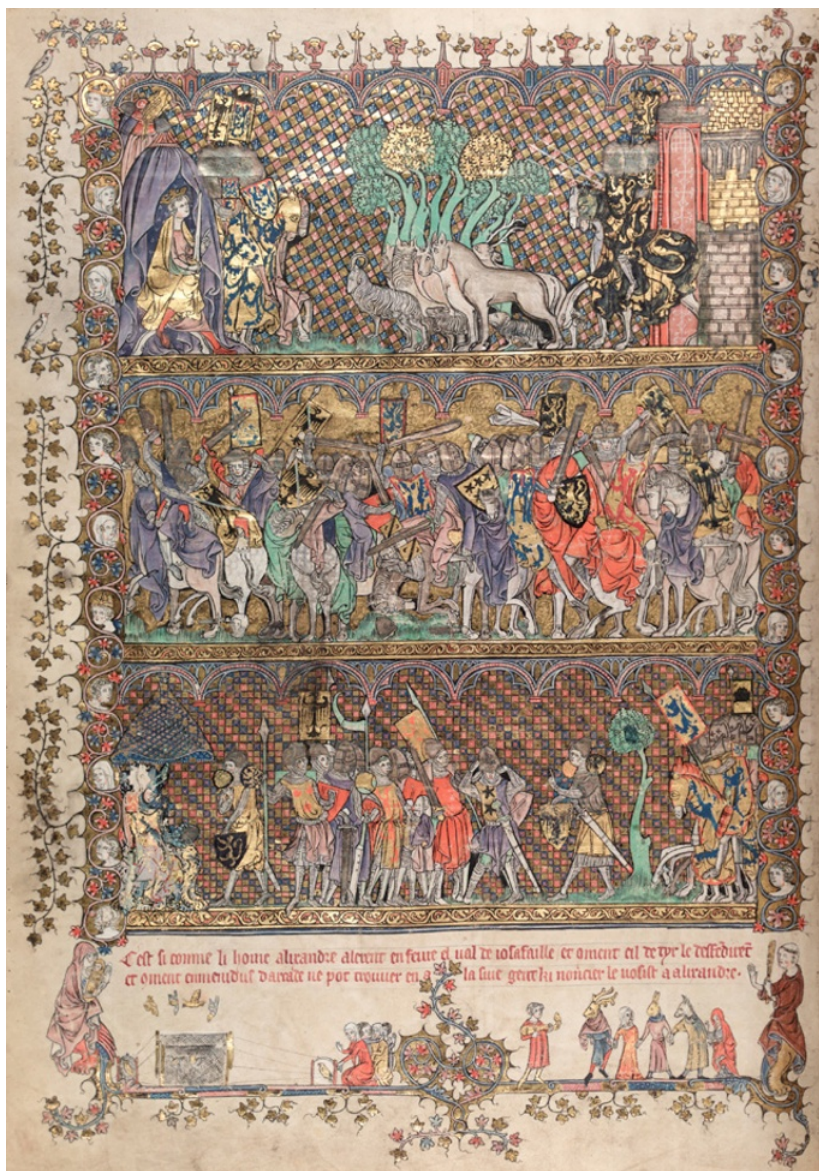 C'est si comme li home alixandre alerent en feurre el val de iosafaille et oment cil de tyr le desfedirent
et oment enmenidus darcade ne pot trouver en la sive gent ki noncier le vosist a alixandre.